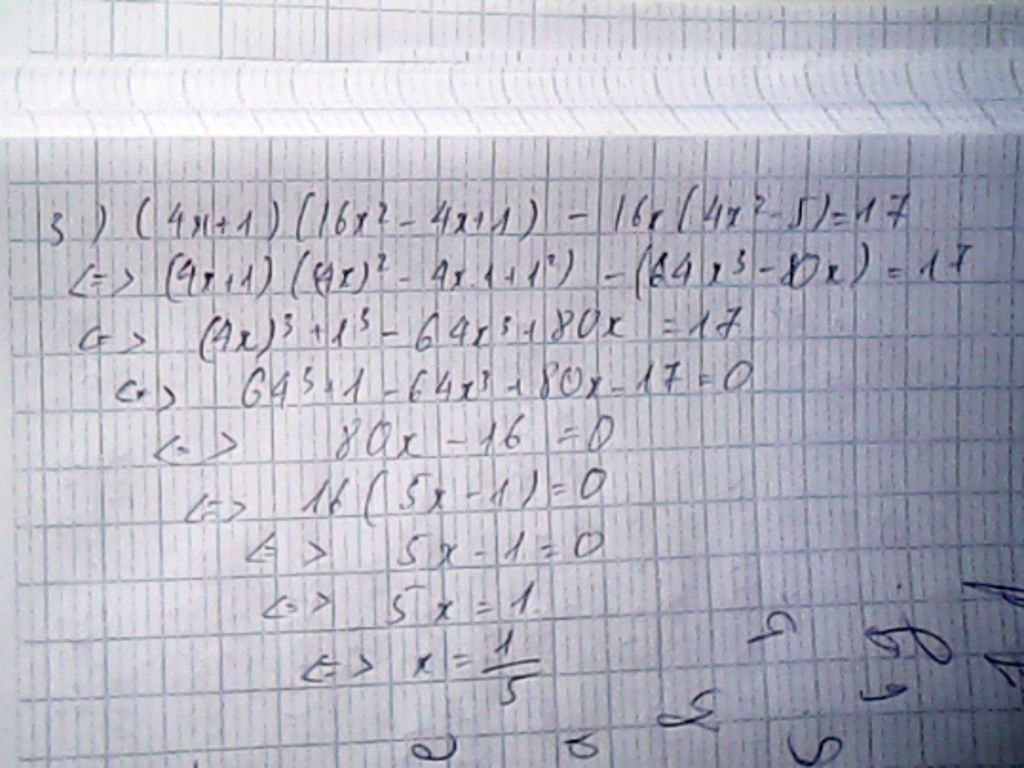 3) (4x+1)(16x² - 4x+1) - 16x(4x²-5)=17
<=> (4x+1)((4x)² - 4x.1+1²) - (64x³-80x) = 17
<=> (4x)³+1³ - 64x³+80x =17
<=> 64³+1-64x³+80x-17=0
<=> 80x-16=0
<=> 16(5x-1)=0
<=> 5x-1=0
<=> 5x=1
<=> x=1/5